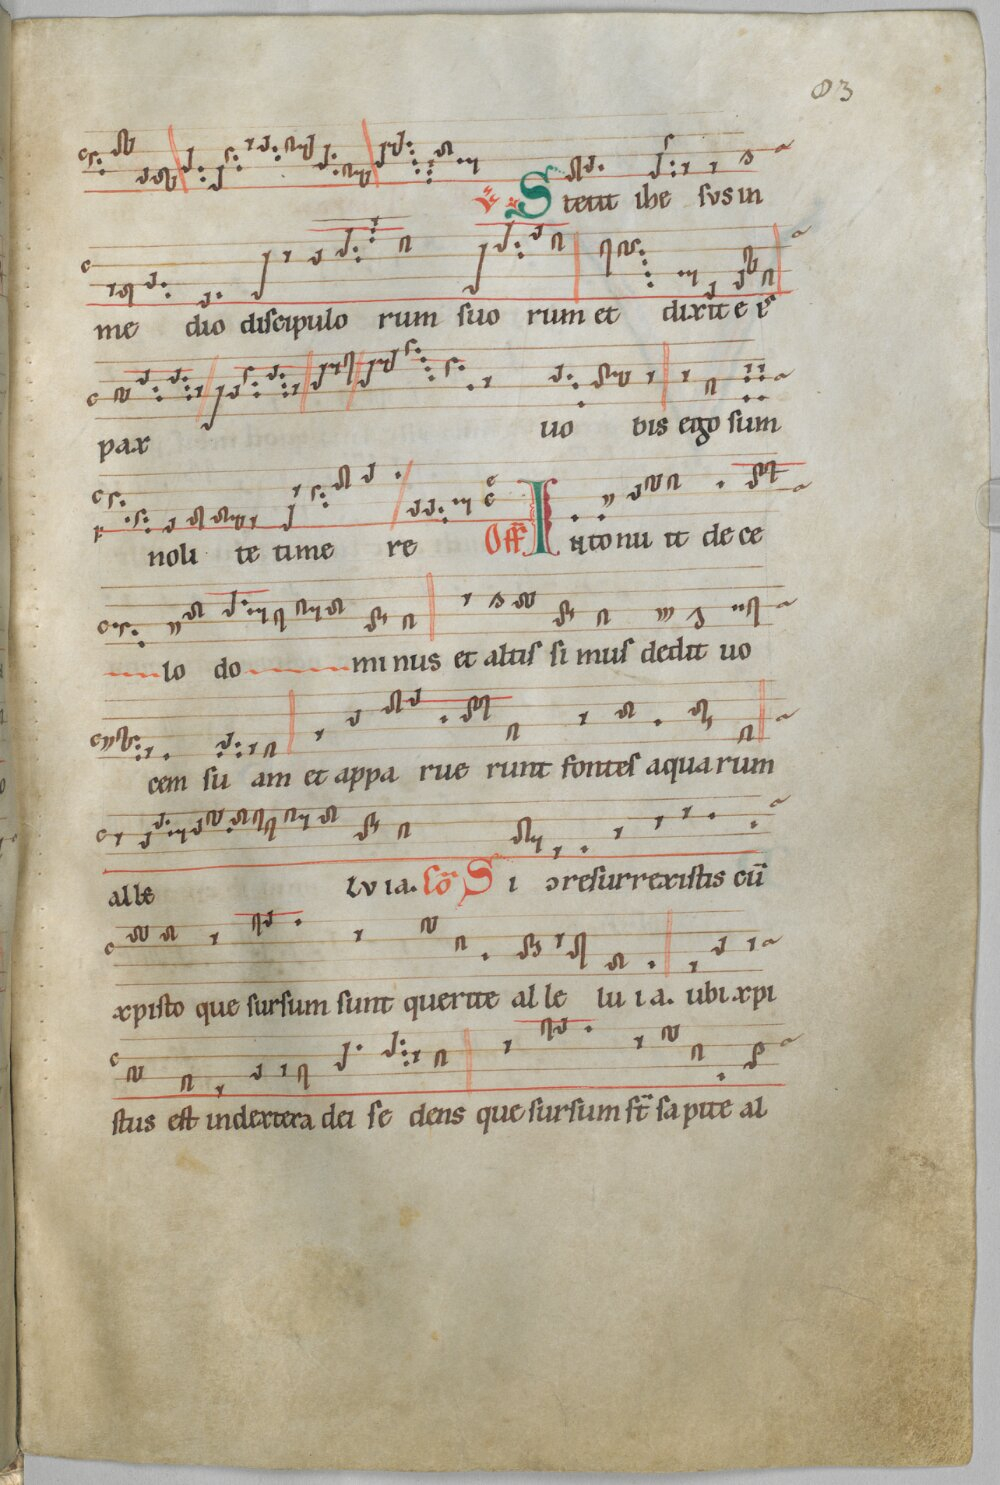 83
Stetit ihe sus in
me dio discipulo rum suo rum et dixit e is
pax uo bis ego sum
noli te time re Off Intonu it de ce
lo do minus et altis si mus dedit uo
cem su am et appa rue runt fontes aqua rum
alle lu ia. Co Si resurrexistis cū
xpisto que sursum sunt querite al le lu i a. ubi xpi
stus est in dextera dei se dens que sursum st̄ sa pite al